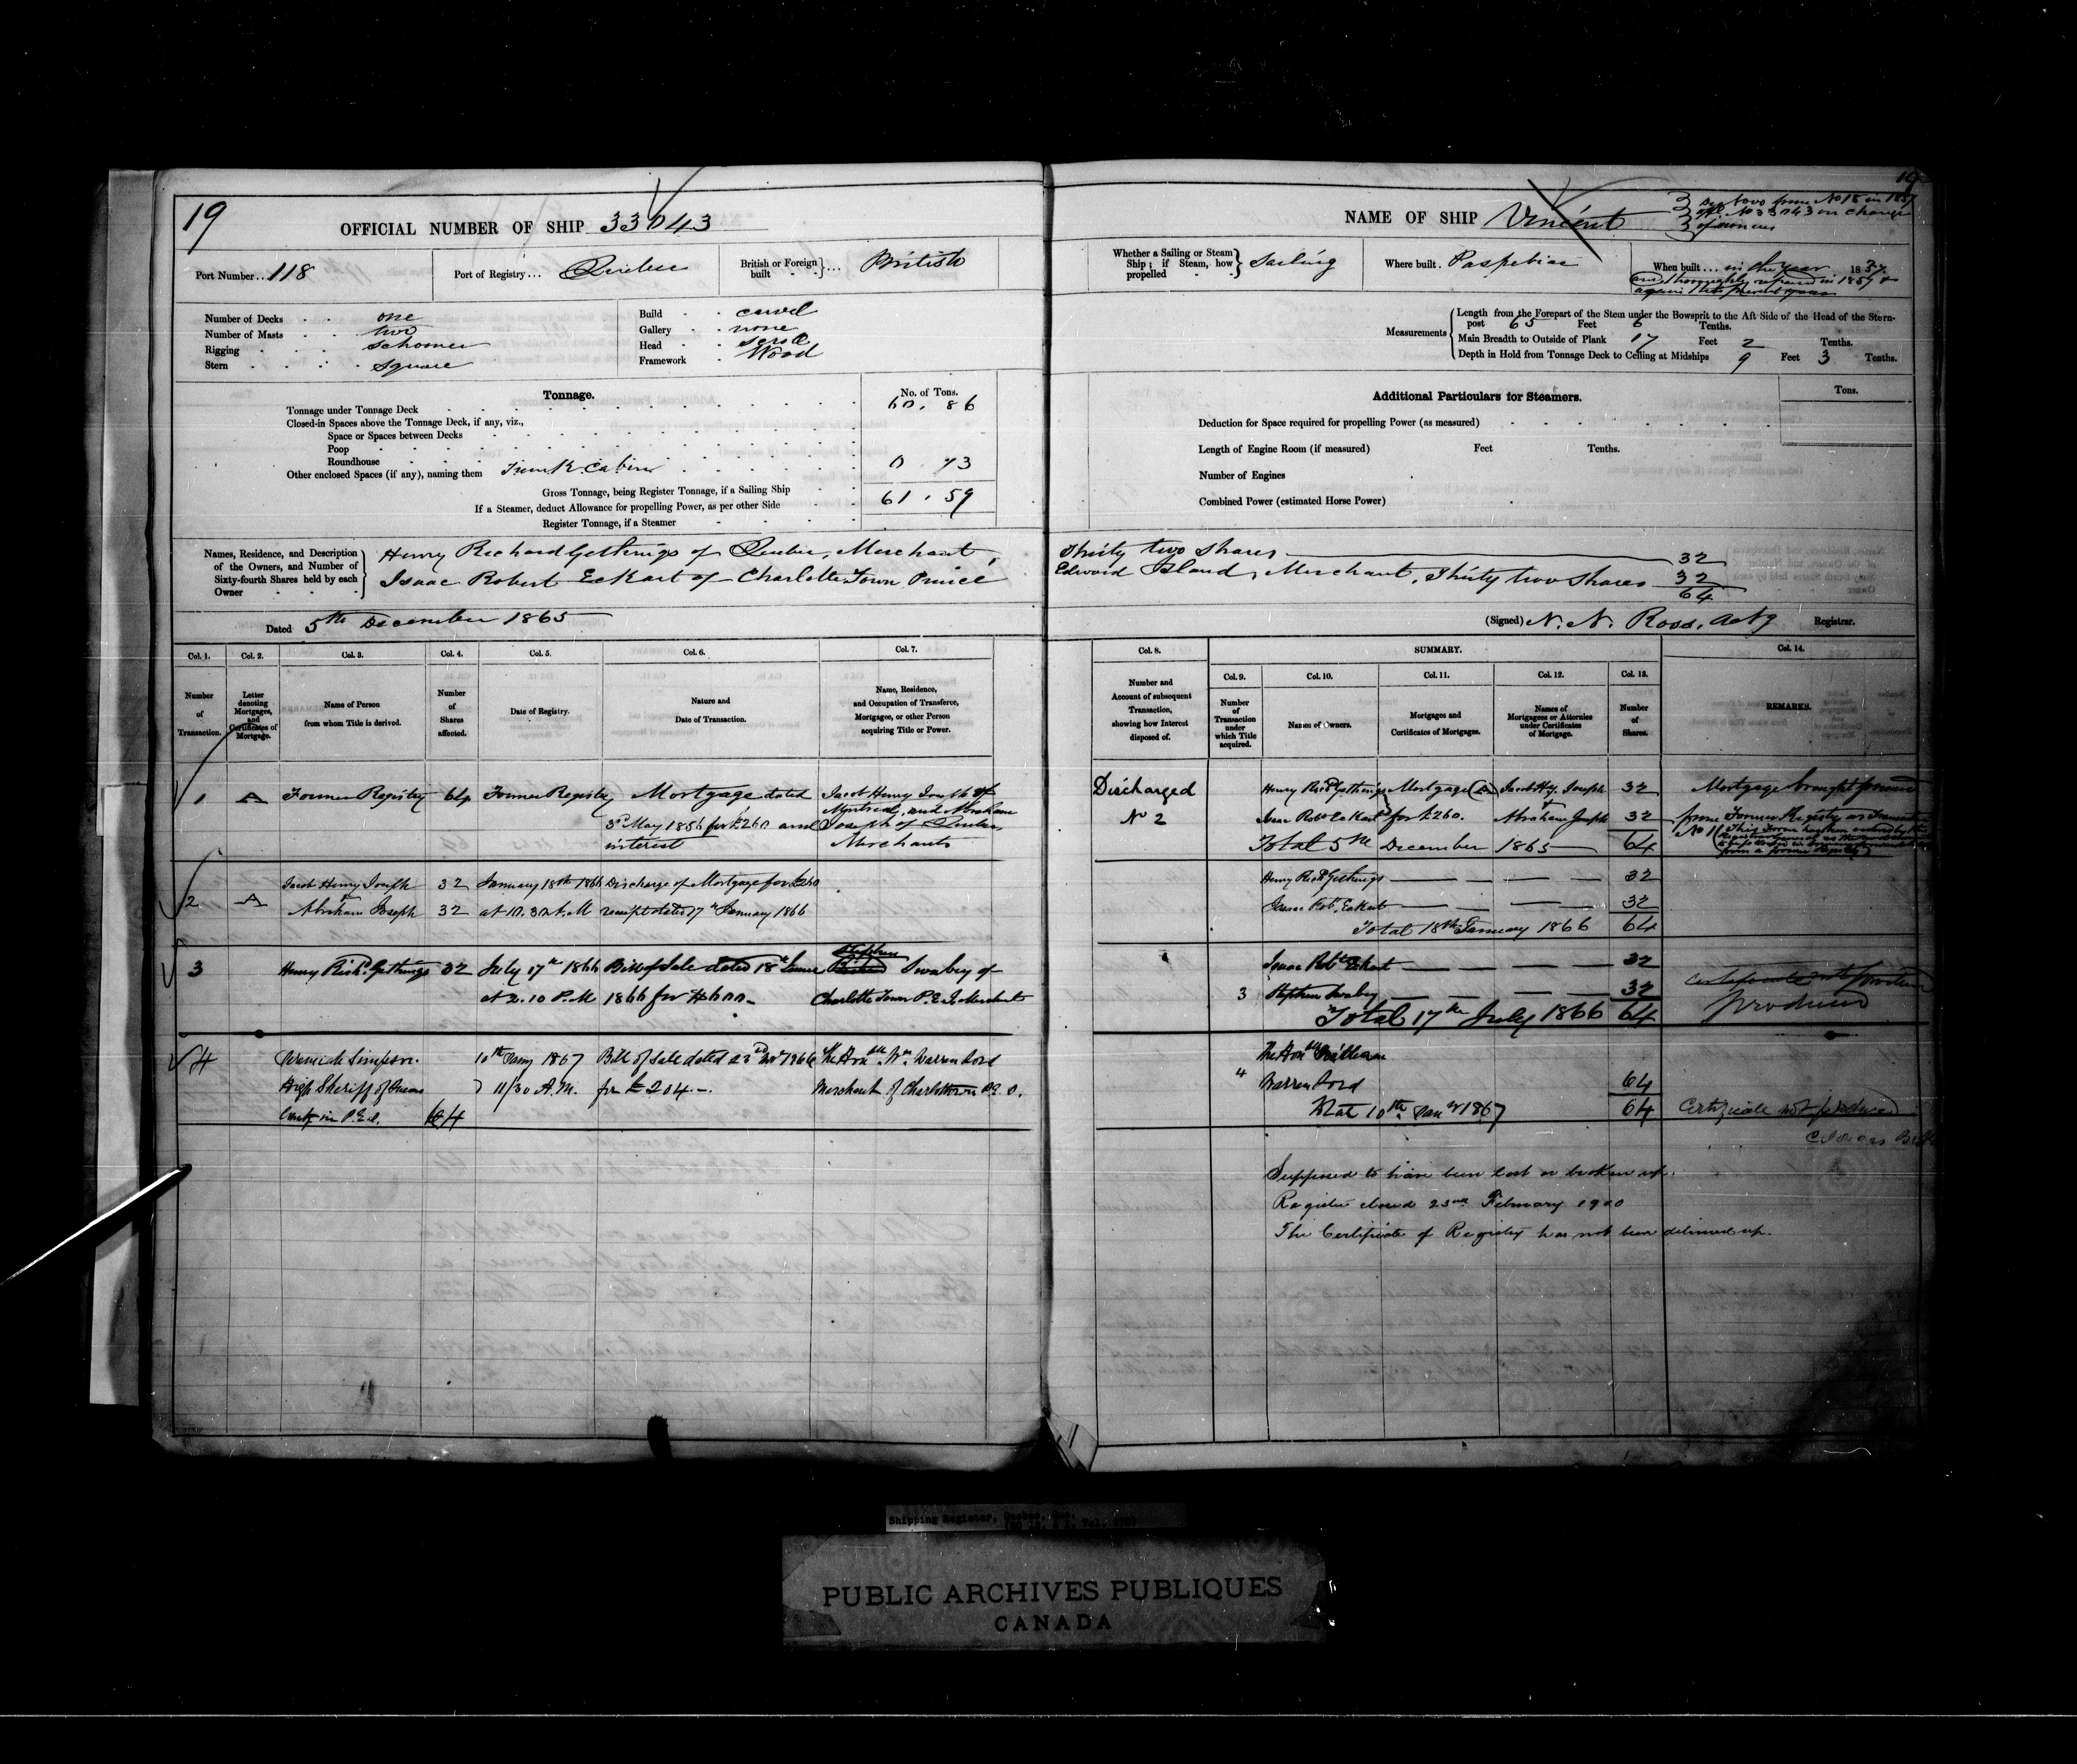 19
OFFICIAL NUMBER OF SHIP 33043
Port Number... 118
Port of Registry... Quebec
British or Foreign built } ... British
Number of Decks one
Number of Masts two
Rigging Schooner
Stern square
Build carvel
Gallery none
Head scroll
Framework Wood
Tonnage.
No. of Tons.
Tonnage under Tonnage Deck 60.86
Closed-in Spaces above the Tonnage Deck, if any, viz.,
Space or Spaces between Decks
Poop
Roundhouse
Other enclosed Spaces (if any), naming them Trunk Cabin 0 73
Gross Tonnage, being Register Tonnage, if a Sailing Ship 61.59
If a Steamer, deduct Allowance for propelling Power, as per other Side
Register Tonnage, if a Steamer
Names, Residence, and Description of the Owners, and Number of Sixty-fourth Shares held by each Owner
Henry Richard Gethings of Quebec, Merchant,
Isaac Robert Eckart of Charlotte Town Prince
Dated 5th December 1865
Col. 1. Col. 2. Col. 3. Col. 4. Col. 5. Col. 6. Col. 7.
Number of Transaction.
Letter denoting Mortgages, and Certificates of Mortgage.
Name of Person from whom Title is derived.
Number of Shares affected.
Date of Registry.
Nature and Date of Transaction.
Name, Residence, and Occupation of Transferee, Mortgagee, or other Person acquiring Title or Power.
1 A Former Registry 64 Former Registry Mortgage dated Jacob Henry Joseph of
Montreal, and Abraham
3rd May 1856 for £260 and Joseph of Quebec,
interest Merchants
Jacob Henry Joseph 32 January 18th 1866 Discharge of Mortgage for £260
2 A & Abraham Joseph 32 at 10.30 A.M receipt dated 17th January 1866
Stephen
3 Henry Richd Gethings 32 July 17th 1866 Bill of Sale dated 18th June Swabey of
at 2.10 P.M 1866 for $600 Charlotte Town P.E.I. Merchant
4 Jeremiah Simpson 10th Jany 1867 Bill of Sale dated 23rd Novr 1866 The Honble Wm Warren Lord
High Sheriff of Queens 11/30 A.M. for £204.- Merchant of Charlottetown P.E.I.
County in P.E.I. 64
19
NAME OF SHIP Vincent
Reg. de novo from No 18 in 1857
offl. No 33043 on change
of owners
Whether a Sailing or Steam Ship; if Steam, how propelled } Sailing
Where built. Paspebiac
When built... in the year 1837.
and thoroughly repaired in 1857 &
again the present year
Measurements
Length from the Forepart of the Stem under the Bowsprit to the Aft Side of the Head of the Stern-
post 65 Feet 6 Tenths.
Main Breadth to Outside of Plank 17 Feet 2 Tenths.
Depth in Hold from Tonnage Deck to Ceiling at Midships 9 Feet 3 Tenths.
Additional Particulars for Steamers.
Tons.
Deduction for Space required for propelling Power (as measured)
Length of Engine Room (if measured) Feet Tenths.
Number of Engines
Combined Power (estimated Horse Power)
Thirty two shares 32
Edward Island, Merchant, Thirty two shares 32
64
(Signed) N. N. Ross, Actg Registrar.
Col. 8. SUMMARY. Col. 14.
Col. 9. Col. 10. Col. 11. Col. 12. Col. 13.
Number and Account of subsequent Transaction, showing how Interest disposed of.
Number of Transaction under which Title acquired.
Names of Owners.
Mortgages and Certificates of Mortgages.
Names of Mortgagees or Attornies under Certificates of Mortgage.
Number of Shares.
REMARKS.
Discharged Henry Richd Gethings Mortgage (A) Jacob Hy. Joseph 32 Mortgage brought forward
No 2 Isaac Robt Eckart for £260. & Abraham Joseph 32 from Former Registry as Transaction
Total 5th December 1865 64 No 11
Henry Richd Gethings 32
Isaac Robt. Eckart 32
Total 18th January 1866 64
Isaac Robt Eckart 32
3 Stephen Swabey 32 Certificate not
Total 17th July 1866 64 produced
The Honble William
4 Warren Lord 64
Total 10th Jany 1867 64 Certificate not produced
Supposed to have been lost or broken up.
Register closed 23rd February 1900
The Certificate of Registry has not been delivered up.
Shipping Register, Quebec, Que.
PUBLIC ARCHIVES PUBLIQUES
CANADA